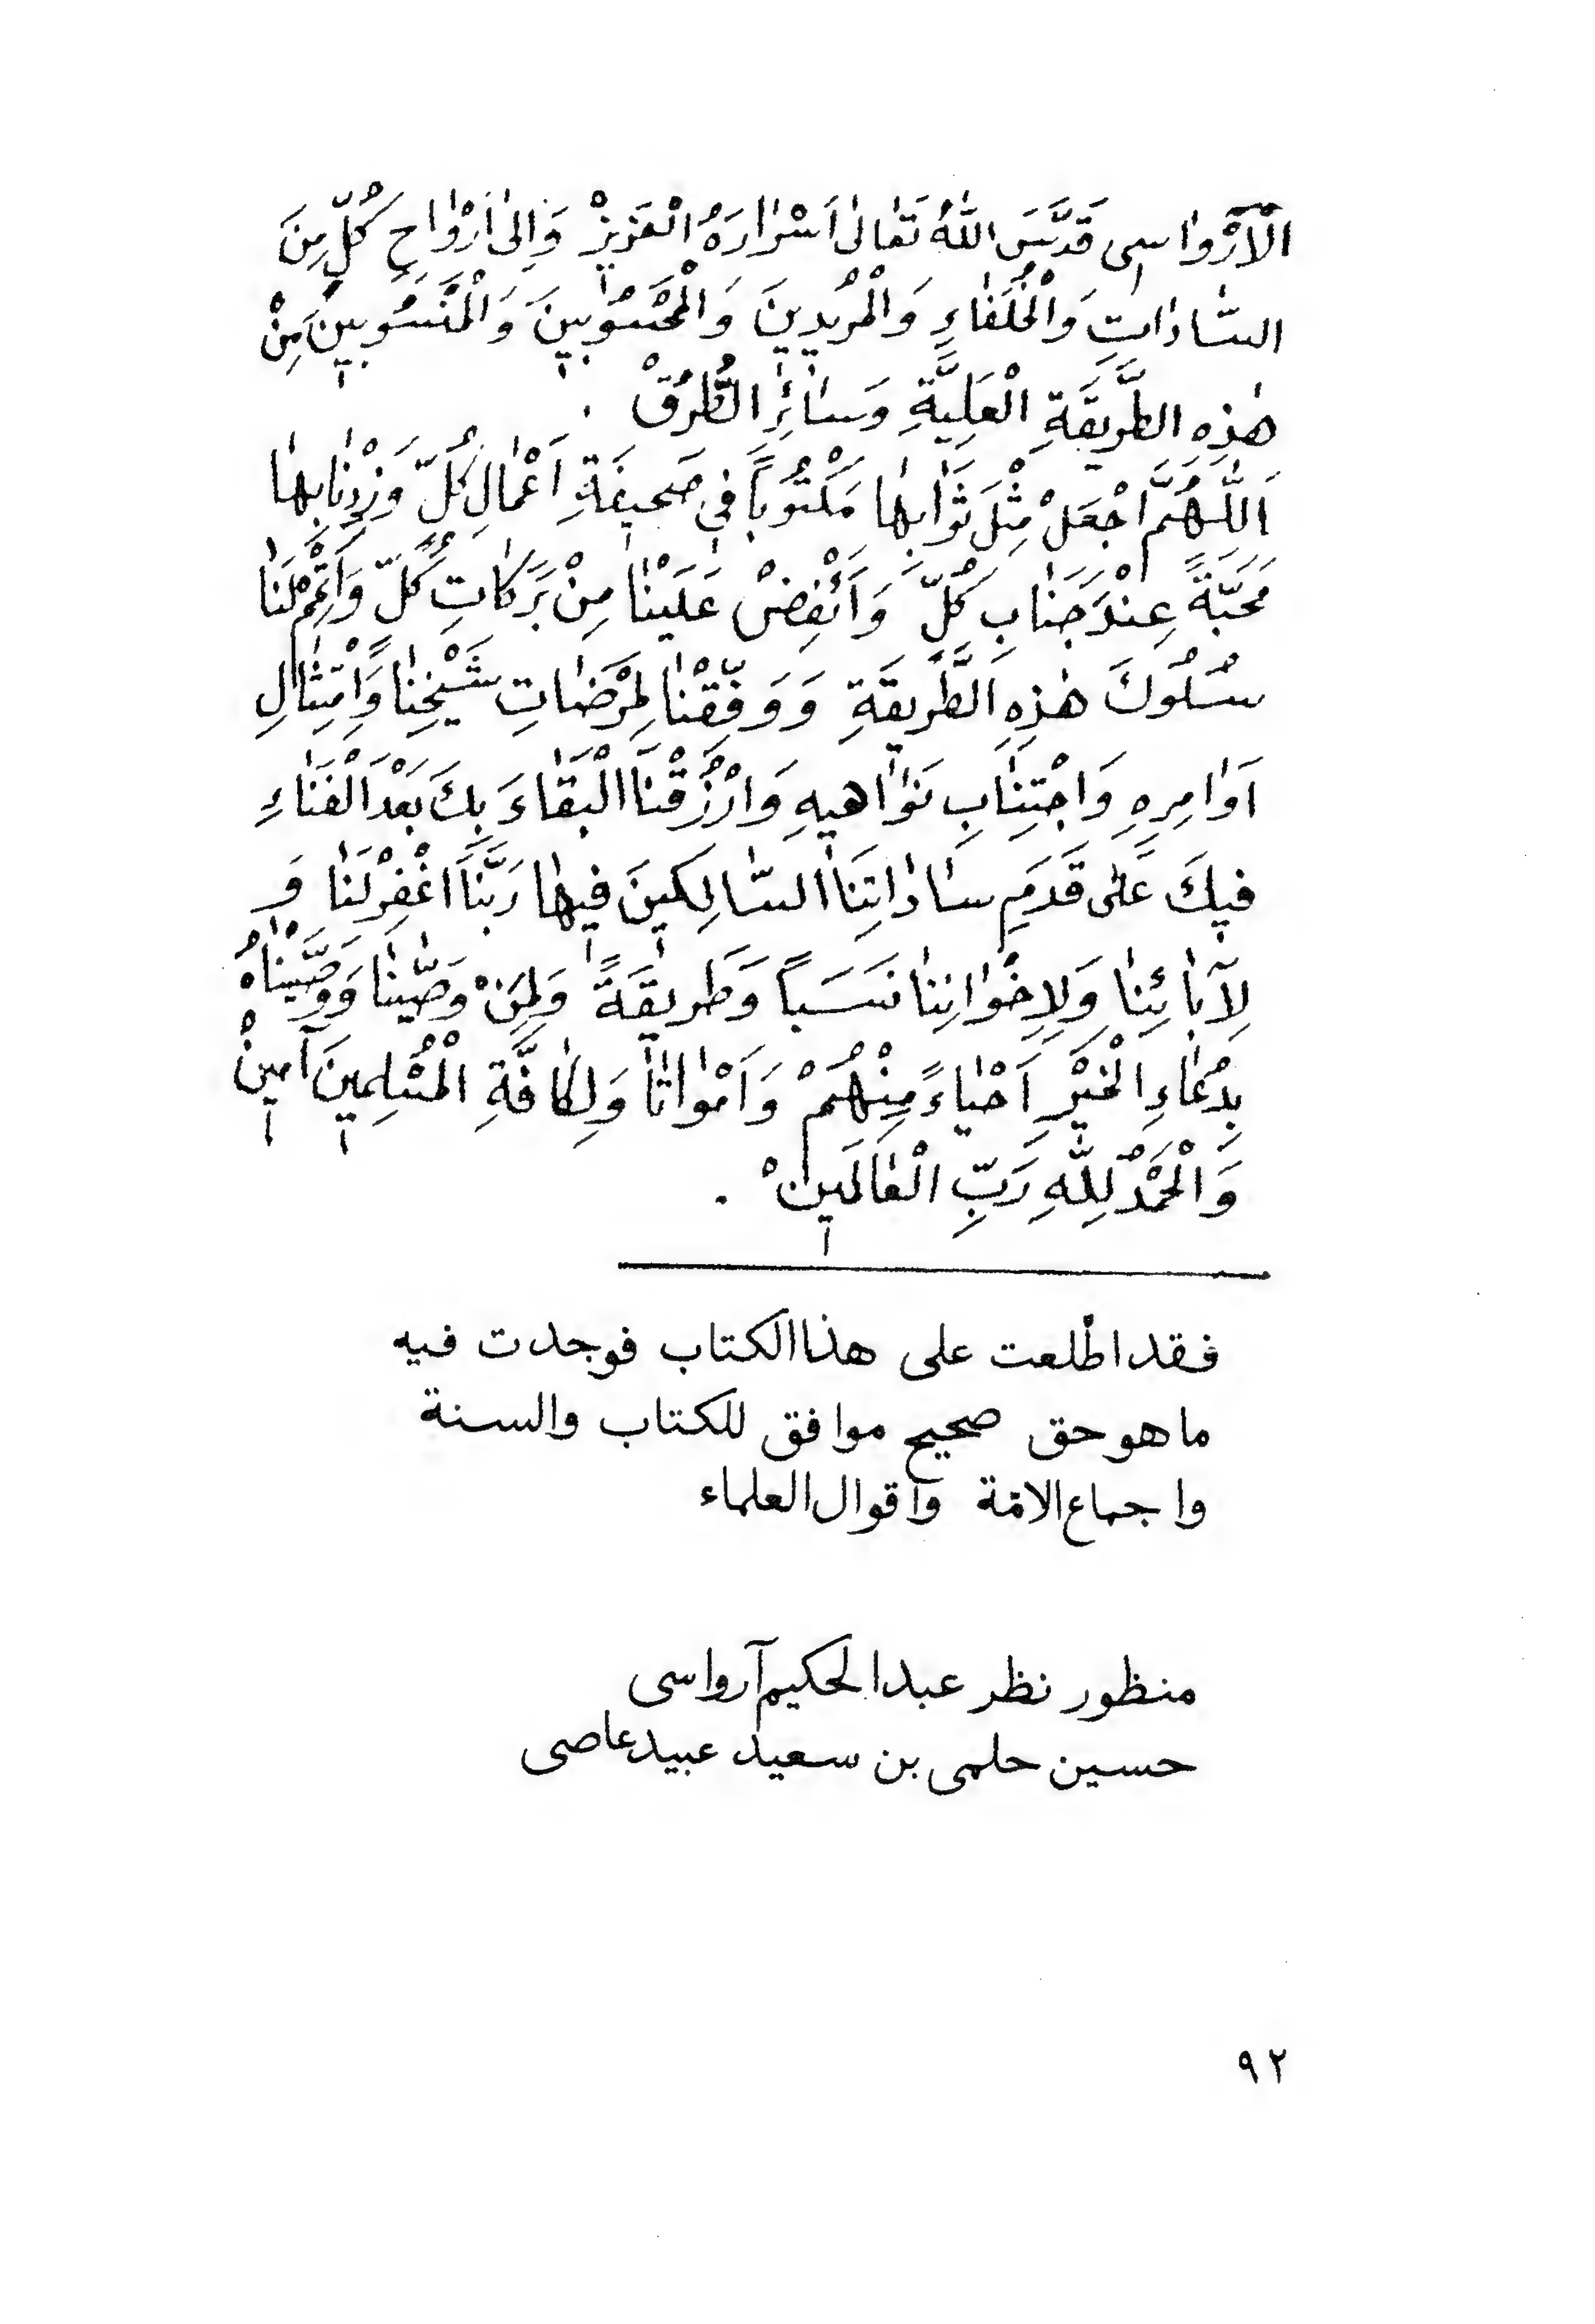 اْلآرْوٰاسِى قَدَّسَ اللّٰهُ تَعٰالٰى اَسْرٰارَهُ الْعَزِيزْ وَاِلٰى اَرْوٰاحِ كُلٍّ مِنَ
السّٰادٰاتِ وَالْخُلَفٰاءِ وَالْمُرِيدِينَ وَالْمَحْسُوبِينَ وَالْمَنْسُوبِينَ مِنْ
هٰذِهِ الطَّرِيقَةِ الْعَلِيَّةِ وَسٰائِرِ الطُّرُقْ .
اَللّٰهُمَّ اجْعَلْ مِثْلَ ثَوٰابِهٰا مَكْتُوبًا فِى صَحِيفَةِ اَعْمٰالِ كُلٍّ وَزِدْنٰا بِهٰا
مَحَبَّةً عِنْدَ جَنٰابِ كُلٍّ وَاَفِضْ عَلَيْنٰا مِنْ بَرَكٰاتِ كُلٍّ وَاَتْمِمْ لَنٰا
سُلُوكَ هٰذِهِ الطَّرِيقَةِ وَوَفِّقْنٰا لِمَرْضٰاتِ شَيْخِنٰا وَامْتِثٰالِ
اَوٰامِرِهِ وَاجْتِنٰابِ نَوٰاهِيهِ وَارْزُقْنَا الْبَقٰاءَ بِكَ بَعْدَ الْفَنٰاءِ
فِيكَ عَلٰى قَدَمِ سٰادٰاتِنَا السّٰالِكِينَ فِيهٰا رَبَّنَا اغْفِرْ لَنٰا وَ
لِآبٰائِنٰا وَلِاِخْوٰانِنٰا نَسَبًا وَطَرِيقَةً وَلِمَنْ وَصّٰينٰا وَوَصَّيْنٰاهُ
بِدُعٰاءِ الْخَيْرِ اَحْيٰاءً مِنْهُمْ وَاَمْوٰاتًا وَلِكٰافَّةِ الْمُسْلِمِينَ آمِينْ
وَالْحَمْدُ لِلّٰهِ رَبِّ الْعٰالَمِينْ .
فقد اطلعت على هذا الكتاب فوجدت فيه
ما هو حق صحيح موافق للكتاب والسنة
واجماع الامّة واقوال العلماء
منظور نظر عبد الحكيم آرواسى
حسين حلمى بن سعيد عبيد عاصى
٩٢